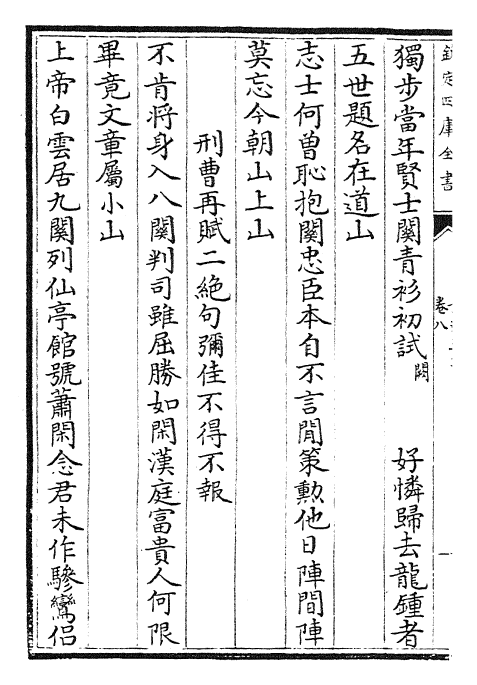 欽定四庫全書
卷八
獨步當年賢士關青衫初試闕　好憐歸去龍鍾者
五世題名在道山
志士何曾恥抱關忠臣本自不言閒策勲他日陣間陣
莫忘今朝山上山
刑曹再賦二絶句彌佳不得不報
不肯將身入八關判司雖屈勝如閑漢庭富貴人何限
畢竟文章屬小山
上帝白雲居九關列仙亭館號蕭閑念君未作驂鸞侣